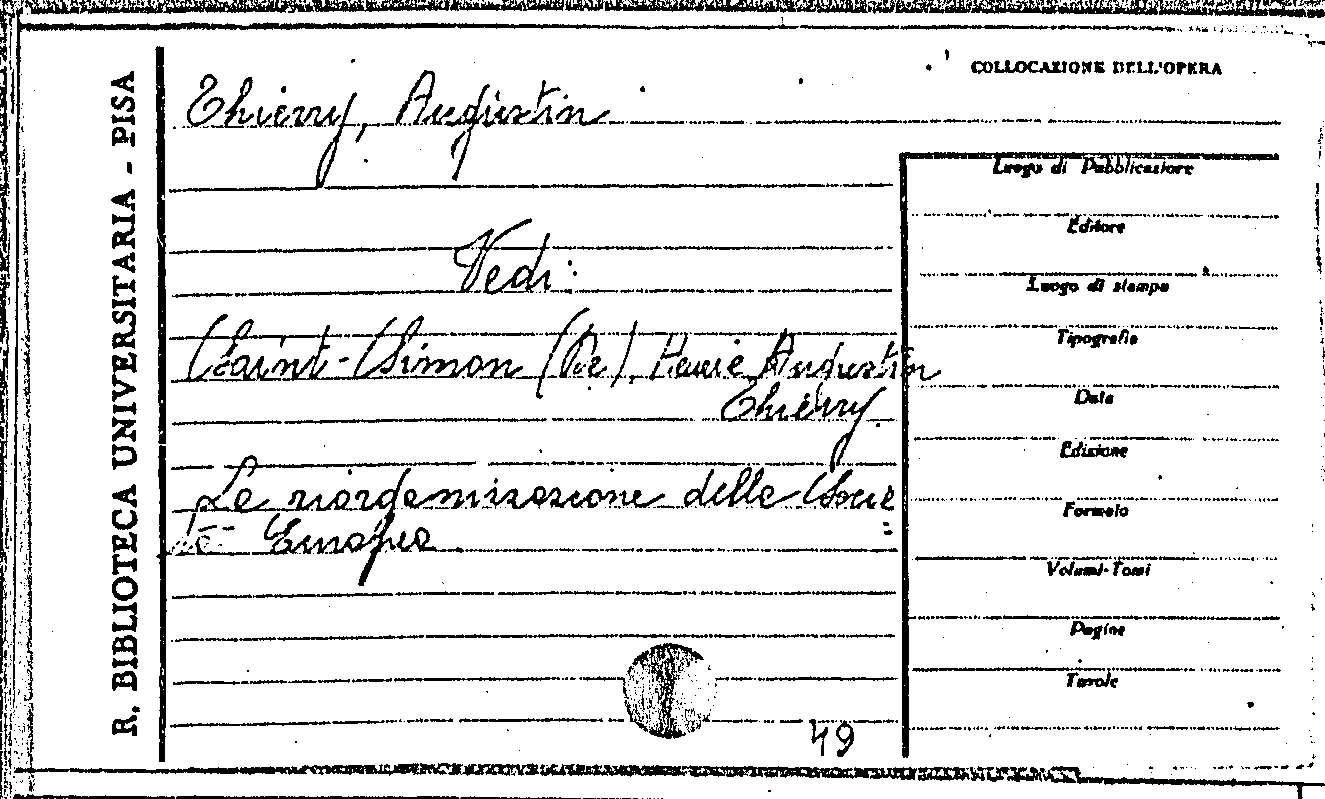 R. BIBLIOTECA UNIVERSITARIA - PISA
COLLOCAZIONE DELL'OPERA
Thierry, Augustin
Vedi:
Saint-Simon (De), Henri e Augustin
Thierry.
La riordganizzazione della Socie=
tà Europea
49
Luogo di Pubblicazione
Editore
Luogo di stampa
Tipografia
Data
Edizione
Formato
Volumi-Tomi
Pagine
Tavole